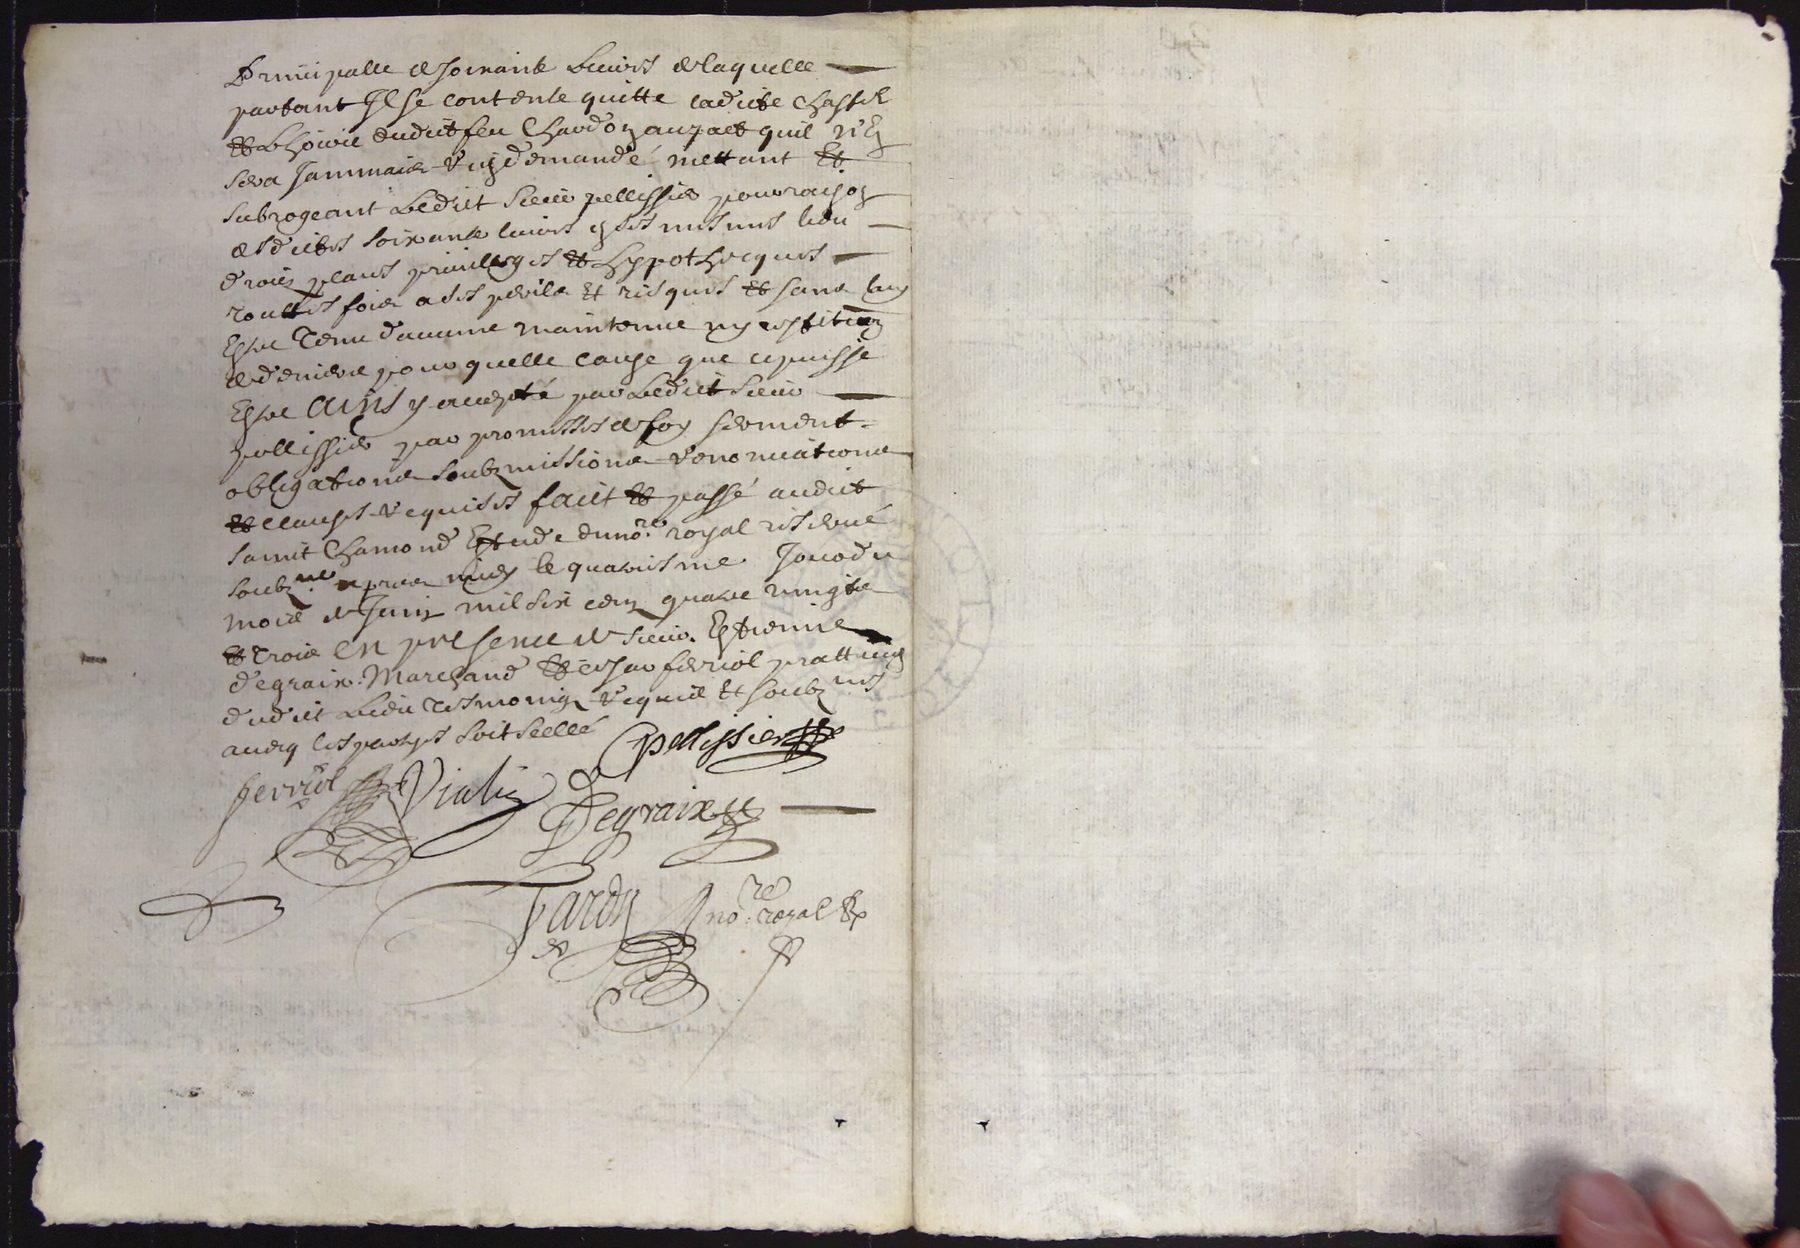 Principalle de soixante livres de laquelle
partant Il se contente quitte ladicte
et L'hoirie dudict feu Chardon au pact quil n'en
sera Jammais rien demandé mettant et
subrogeant Ledict sieur pellissier pour raison
desdictes soixante livres en ses lieu
droict place privileges et hyppotheques
touttes fois a ses perils et risques et sans luy
Estre Tenu daucune maintenue ny restitution
de deniers pour quelle cause que ce puisse
Estre Ainsy accepté par Ledict sieur
pellissier par promesses de foy serment
obligations soubzmissions renonciations
et clauses requises faict et passé audict
sainct Chamond Estude du no.re royal reservé
soubz.né apres midy le quatriesme Jour du
mois de Juin mil six cens quatre vingts
et trois en presence de sieur Estienne
degraix Marchand et ferriol pratticien
dudict Lieu Tesmoins requis et soubz.nés
avecq les parties soit scellé
pellissier
ferriol Vialis
Degraix
Tardy no.re royal